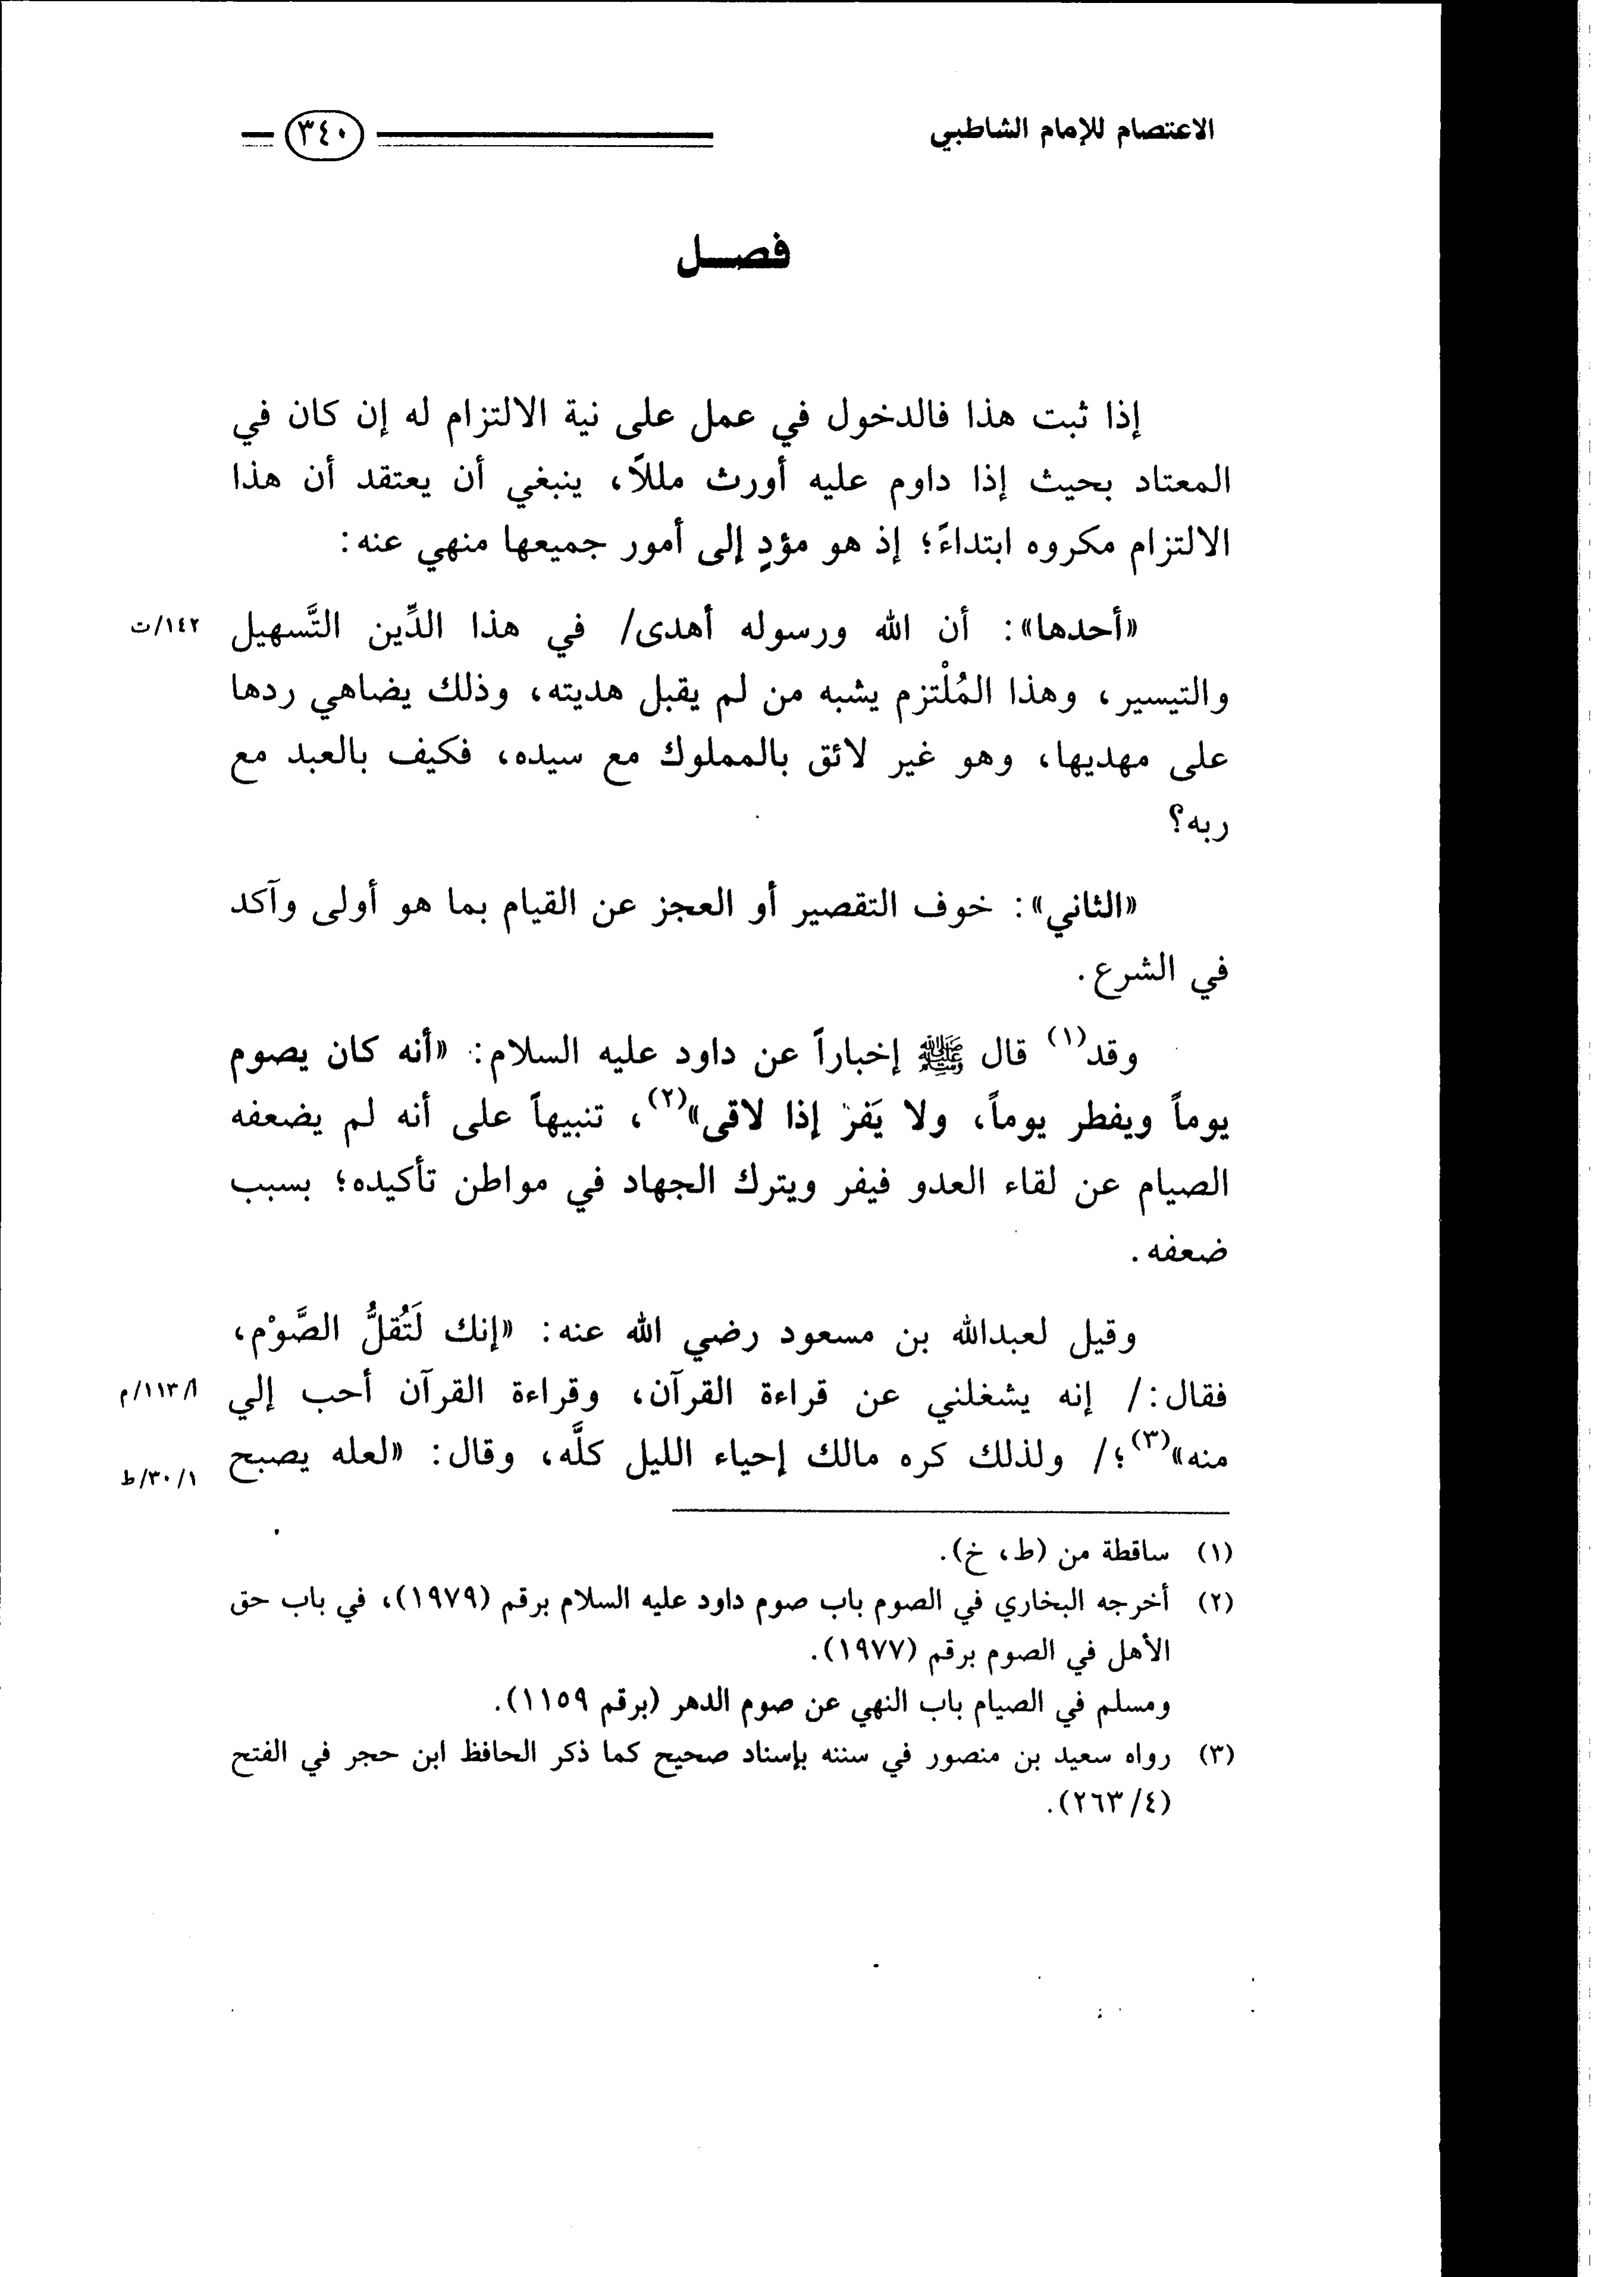 الاعتصام للإمام الشاطبي
٣٤٠
فصــل
إذا ثبت هذا فالدخول في عمل على نية الالتزام له إن كان في
المعتاد بحيث إذا داوم عليه أورث مللاً، ينبغي أن يعتقد أن هذا
الالتزام مكروه ابتداءً؛ إذ هو مؤدٍ إلى أمور جميعها منهي عنه:
«أحدها»: أن الله ورسوله أهدى/ في هذا الدِّين التَّسهيل
١٤٢/ت
والتيسير، وهذا المُلْتزم يشبه من لم يقبل هديته، وذلك يضاهي ردها
على مهديها، وهو غير لائق بالمملوك مع سيده، فكيف بالعبد مع
ربه؟
«الثاني»: خوف التقصير أو العجز عن القيام بما هو أولى وآكد
في الشرع.
وقد(١) قال ﷺ إخباراً عن داود عليه السلام: «أنه كان يصوم
يوماً ويفطر يوماً، ولا يَفرّ إذا لاقى»(٢)، تنبيهاً على أنه لم يضعفه
الصيام عن لقاء العدو فيفر ويترك الجهاد في مواطن تأكيده؛ بسبب
ضعفه.
وقيل لعبدالله بن مسعود رضي الله عنه: «إنك لَتُقلُّ الصَّوْم،
فقال:/ إنه يشغلني عن قراءة القرآن، وقراءة القرآن أحب إلي
أ/١١٣/م
منه»(٣)؛/ ولذلك كره مالك إحياء الليل كلَّه، وقال: «لعله يصبح
١/٣٠/ط
(١) ساقطة من (ط، خ).
(٢) أخرجه البخاري في الصوم باب صوم داود عليه السلام برقم (١٩٧٩)، في باب حق
الأهل في الصوم برقم (١٩٧٧).
ومسلم في الصيام باب النهي عن صوم الدهر (برقم ١١٥٩).
(٣) رواه سعيد بن منصور في سننه بإسناد صحيح كما ذكر الحافظ ابن حجر في الفتح
(٤/٢٦٣).